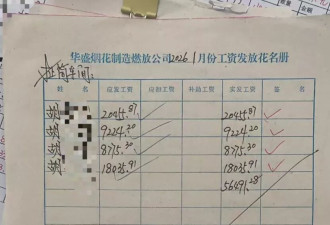 华盛烟花制造燃放公司2026.1月份工资发放花名册
筒车间:
姓 名 应发工资 应扣工资 补助工资 实发工资 签 名
胡 20455.87 20455.87
胡 9224.20 9224.20
胡 8775.30 8775.30
胡 18035.91 18035.91
56491.28